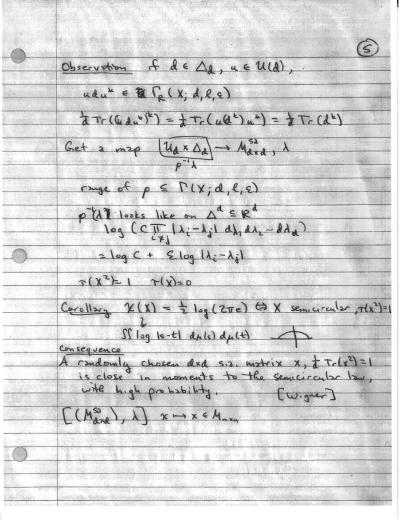 ⑤
Observation if d ∈ Δ_d, u ∈ U(d),
u d u* ∈ Γ_R(X; d, l, ε)
1/d Tr((u d u*)^k) = 1/d Tr(u d^k u*) = 1/d Tr(d^k)
Get a map U_d × Δ_d → M_{d×d}^{sa}, λ
p^{-1}λ
range of p ⊆ Γ(X; d, l, ε)
p^{-1}(λ) looks like on Δ^d ⊆ R^d
log (C Π_{i≠j} |λ_i - λ_j| dλ_1 dλ_2 ... dλ_d)
= log C + Σ log |λ_i - λ_j|
τ(X²) = 1 τ(X) = 0
Corollary χ(X) = 1/2 log(2πe) ⇔ X semicircular, τ(X²)=1
∫∫ log |s-t| dμ(s) dμ(t)
Consequence
A randomly chosen dxd s.a. matrix x, 1/d Tr(x²) = 1
is close in moments to the semicircular law,
with high probability. [Wigner]
[(M_{d×d}^{sa}), λ] x ↦ x ∈ M_{n×n}